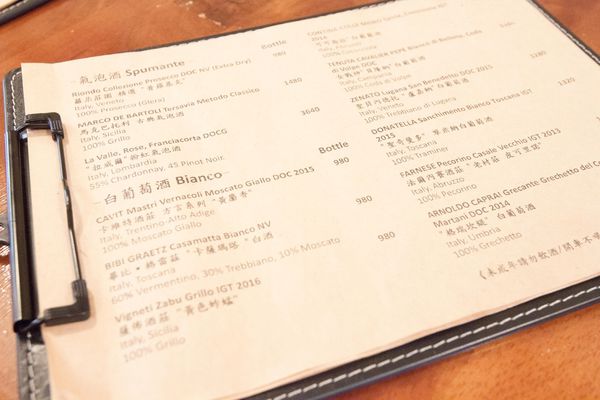 氣泡酒 Spumante
Bottle
Riondo Collezione Prosecco DOC NV (Extra Dry)
980
Italy, Veneto
100% Prosecco (Glera)
MARCO DE BARTOLI Tersavia Metodo Classico
1480
馬克巴托利 古典氣泡酒
Italy, Sicilia
100% Grillo
La Valle, Rose, Franciacorta DOCG
3640
"拉威爾"粉紅氣泡酒
Italy, Lombardia
55% Chardonnay, 45 Pinot Noir.
白葡萄酒 Bianco
Bottle
CAVIT Mastri Vernacoli Moscato Giallo DOC 2015
980
卡維特酒莊 方言系列 "黃蘭香"
Italy, Trentino-Alto Adige
100% Moscato Giallo
BIBI GRAETZ Casamatta Bianco NV
980
畢比•格雷茲 "卡薩瑪塔"白酒
Italy, Toscana
60% Vermentino, 30% Trebbiano, 10% Moscato
Vigneti Zabu Grillo IGT 2016
980
薩佛酒莊 "黃色蚱蜢"
Italy, Sicilia
100% Grillo
2016
Italy, Abruzzo
100% Cococciola
TENUTA CAVALIER PEPE Bianco di Bellona, Coda
di Volpe DOC
Italy, Campania
100% Coda di Volpe
ZENATO Lugana San Benedetto DOC 2015
1480
Italy, Veneto
100% Trebbiano di Lugana
DONATELLA Sanchimento Bianco Toscana IGT
2015
Italy, Toscana
100% Traminer
FARNESE Pecorino Casale Vecchio IGT 2015
Italy, Abruzzo
100% Pecorino
ARNOLDO CAPRAI Grecante Grechetto del C
Martani DOC 2014
Italy, Umbria
100% Grechetto
《未成年請勿飲酒/開車不